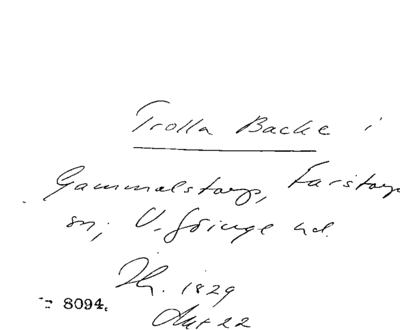 Trolla Backe i
Gammalstorp, Farstorp
sn; V. Göinge hd.
Th. 1829
8094.
22